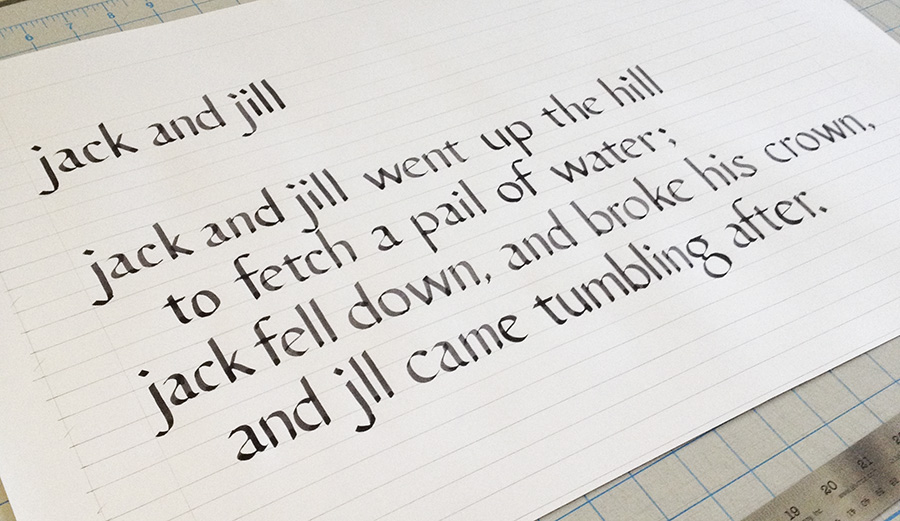 6 7 8 9
jack and jill
jack and jill went up the hill
to fetch a pail of water;
jack fell down, and broke his crown,
and jll came tumbling after.
19 20 21